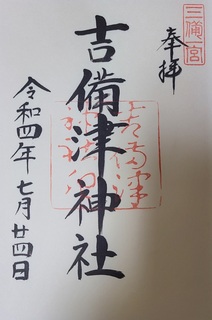 三備一宮
奉拝
吉備津神社
令和四年七月廿四日